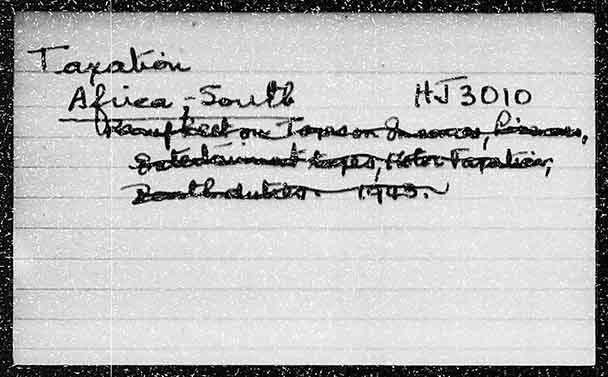 Taxation
Africa - South HJ3010
Pamphlet on Taxes on Incomes, Licenses,
Entertainment taxes, Motor Taxation,
Death duties. 1943.